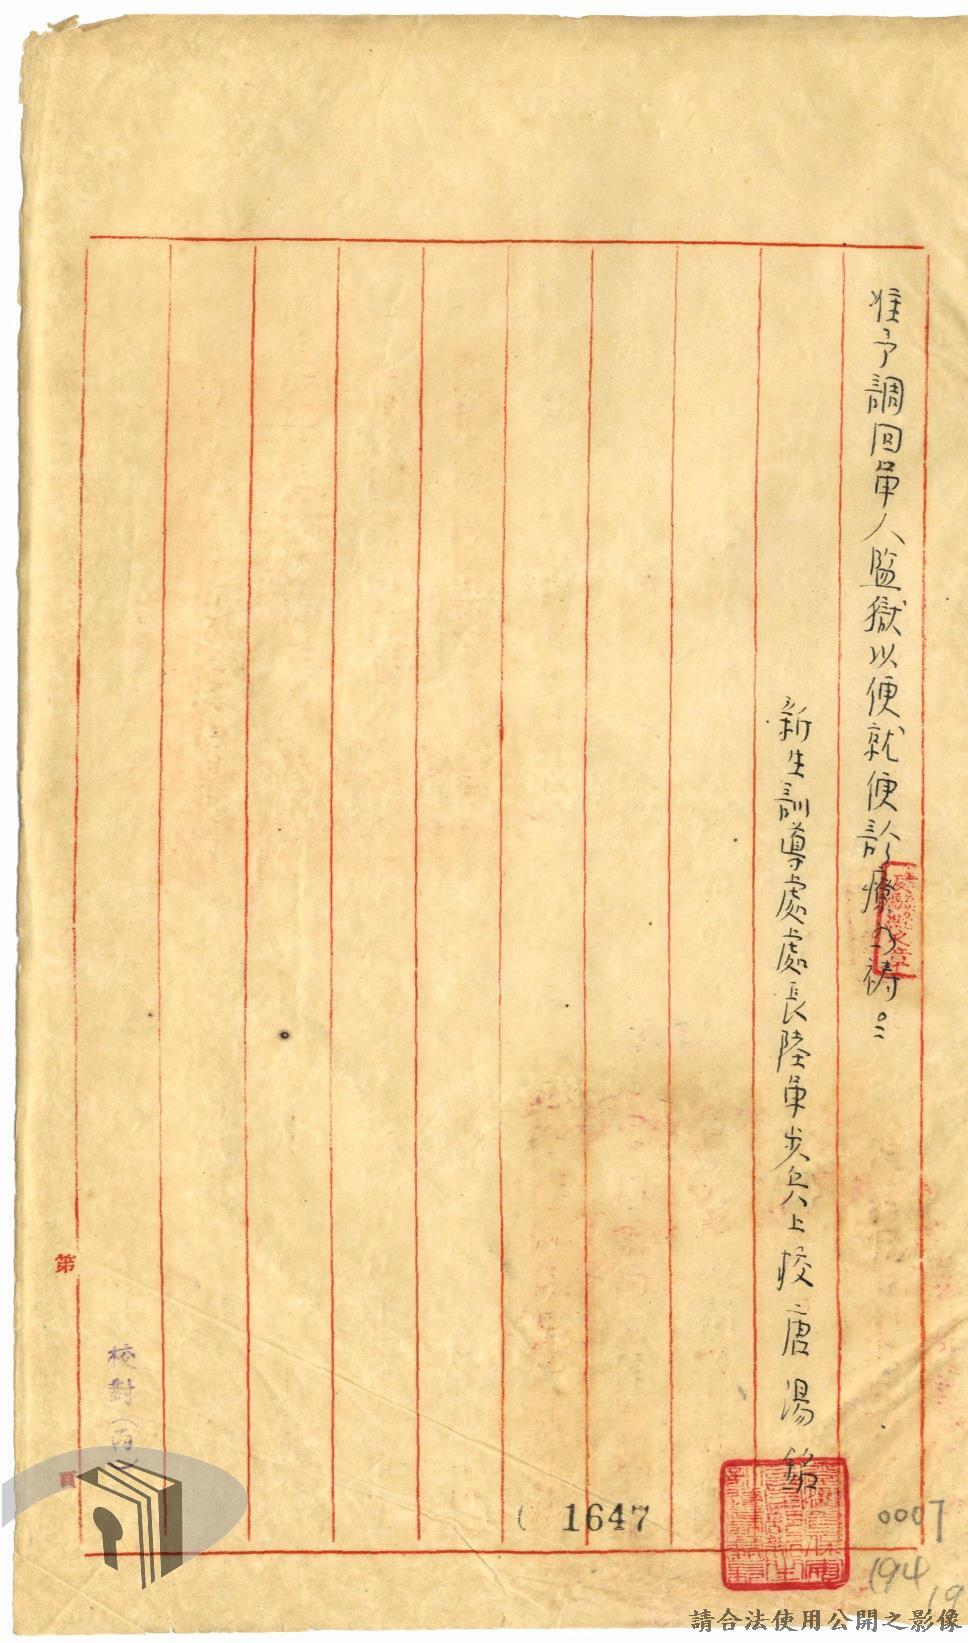 准予調回軍人監獄以便就便診療為禱。
新生訓導處處長陸軍步兵上校唐湯銘
第
頁
校對(丙)
( 1647
0007
194
19
請合法使用公開之影像